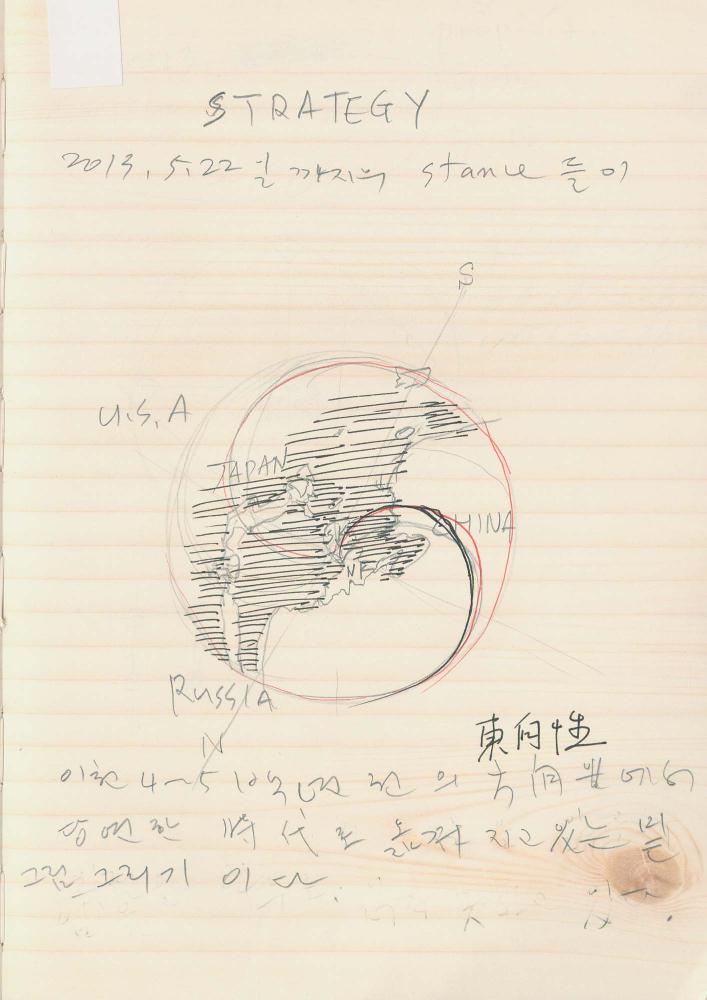 STRATEGY
2013. 5. 22 일 까지의 stance 들이
S
U.S.A
JAPAN
CHINA
SK
NK
RUSSIA
N
東向性
이전 4~5 년 전 의 方向性 에서
당연한 時代로 옮겨 지고 있는 밑
그림 그리기 이다
있다.